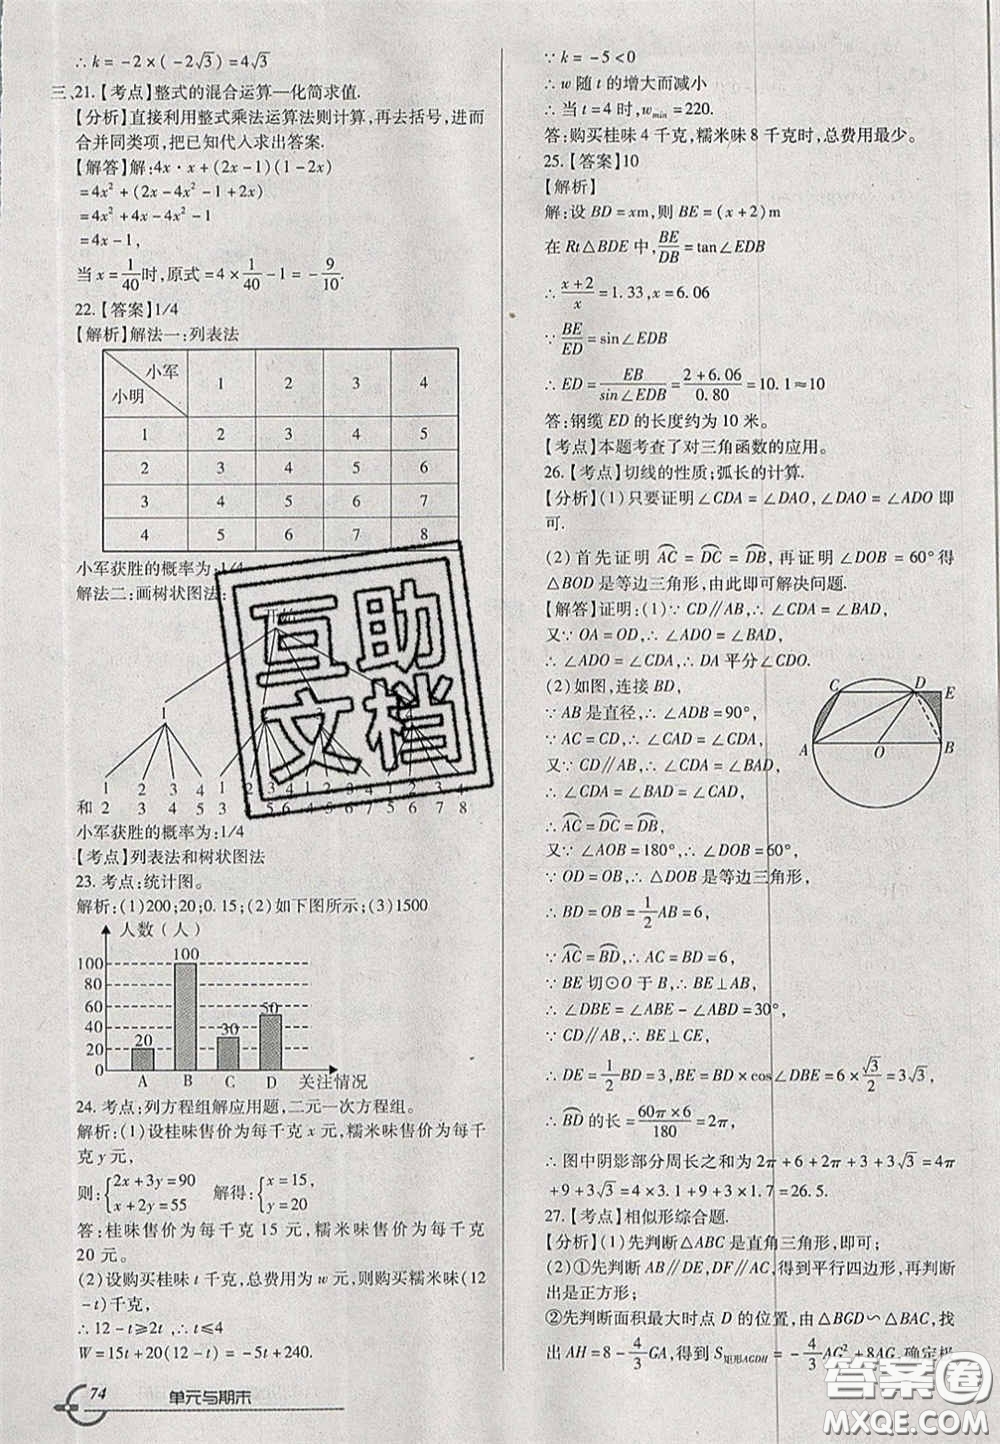 ∴k=-2×(-2√3)=4√3
三、21.【考点】整式的混合运算—化简求值.
【分析】直接利用整式乘法运算法则计算,再去括号,进而
合并同类项,把已知代人求出答案.
【解答】解:4x·x+(2x-1)(1-2x)
=4x²+(2x-4x²-1+2x)
=4x²+4x-4x²-1
=4x-1,
当x=1/40时,原式=4×1/40-1=-9/10.
22.【答案】1/4
【解析】解法一:列表法
小军 小明 1 2 3 4
1 2 3 4 5
2 3 4 5 6
3 4 5 6 7
4 5 6 7 8
小军获胜的概率为:1/4
解法二:画树状图法:
1
1 2 3 4 1 2 3 4 1 2 3 4 1 2 3 4
和 2 3 4 5 3 4 5 6 4 5 6 7 5 6 7 8
小军获胜的概率为:1/4
【考点】列表法和树状图法
23.考点:统计图。
解析:(1)200;20;0.15;(2)如下图所示;(3)1500
人数(人)
100
80
60
40
20
0
20 100 30 50
A B C D 关注情况
24.考点:列方程组解应用题,二元一次方程组。
解析:(1)设桂味售价为每千克x元,糯米味售价为每千
克y元,
则:{2x+3y=90 x+2y=55 解得:{x=15, y=20
答:桂味售价为每千克15元,糯米味售价为每千克
20元。
(2)设购买桂味t千克,总费用为w元,则购买糯米味(12
-t)千克,
∴12-t≥2t,∴t≤4
W=15t+20(12-t)=-5t+240.
74 单元与期末
∵k=-5<0
∴w随t的增大而减小
∴当t=4时,wmin=220.
答:购买桂味4千克,糯米味8千克时,总费用最少。
25.【答案】10
【解析】
解:设BD=xm,则BE=(x+2)m
在Rt△BDE中,BE/DB=tan∠EDB
∴(x+2)/x=1.33,x=6.06
∵BE/ED=sin∠EDB
∴ED=EB/sin∠EDB=(2+6.06)/0.80=10.1≈10
答:钢缆ED的长度约为10米。
【考点】本题考查了对三角函数的应用。
26.【考点】切线的性质;弧长的计算.
【分析】(1)只要证明∠CDA=∠DAO,∠DAO=∠ADO即
可.
(2)首先证明⌒AC=⌒DC=⌒DB,再证明∠DOB=60°得
△BOD是等边三角形,由此即可解决问题.
【解答】证明:(1)∵CD∥AB,∴∠CDA=∠BAD,
又∵OA=OD,∴∠ADO=∠BAD,
∴∠ADO=∠CDA,∴DA平分∠CDO.
(2)如图,连接BD,
∵AB是直径,∴∠ADB=90°,
∵AC=CD,∴∠CAD=∠CDA,
又∵CD∥AB,∴∠CDA=∠BAD,
∴∠CDA=∠BAD=∠CAD,
∴⌒AC=⌒DC=⌒DB,
又∵∠AOB=180°,∴∠DOB=60°,
∵OD=OB,∴△DOB是等边三角形,
∴BD=OB=1/2AB=6,
∵⌒AC=⌒BD,∴AC=BD=6,
∵BE切⊙O于B,∴BE⊥AB,
∴∠DBE=∠ABE-∠ABD=30°,
∵CD∥AB,∴BE⊥CE,
∴DE=1/2BD=3,BE=BD×cos∠DBE=6×√3/2=3√3,
∴⌒BD的长=60π×6/180=2π,
∴图中阴影部分周长之和为2π+6+2π+3+3√3=4π
+9+3√3=4×3.1+9+3×1.7=26.5.
C D E
A O B
27.【考点】相似形综合题.
【分析】(1)先判断△ABC是直角三角形,即可;
(2)①先判断AB∥DE,DF∥AC,得到平行四边形,再判断
出是正方形;
②先判断面积最大时点D的位置,由△BGD∽△BAC,找
出AH=8-4/3GA,得到S矩形AGDH=-4/3AG²+8AG,确定极
互助
文档
答案圈
MXQE.COM